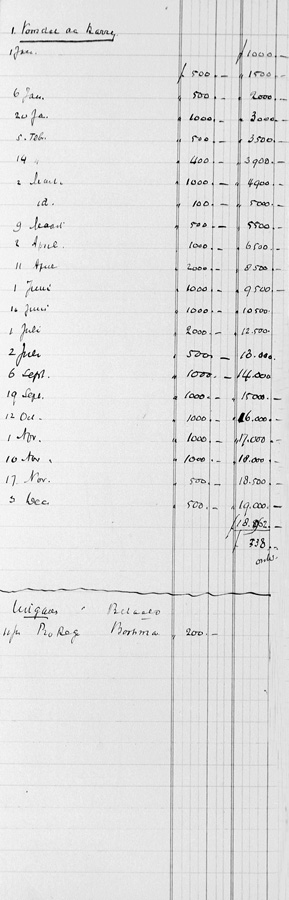 1 Jan. ƒ 1000.–
ƒ 500.– " 1500.–
6 Jan. " 500.– " 2000.–
20 Ja. " 1000.– " 3000.–
5 Feb. " 500.– " 3500.–
14 " " 400.– " 3900.–
2 Maart. " 1000.– " 4900.–
id. " 100.– " 5000.–
9 Maart " 500.– " 5500.–
2 April. " 1000.– " 6500.–
11 April " 2000.– " 8500.–
1 Juni " 1000.– " 9500.–
Juni " 1000.– " 10500.–
1 Juli " 2000.– " 12.500.–
2 Juli " 500.– " 13.000.–
6 Sept. " 1000.– " 14.000
19 Sept. " 1000.– " 15000.–
12 Oct. " 1000.– " 16.000.–
1 Nov. " 1000.– " 17.000.–
10 Nov. " 1000.– " 18.000.–
17 Nov. " 500.– " 18.500.–
3 Dec. " 500.– " 19.000.–
ƒ
ƒ 338.–
Uitgaas
" 200.–